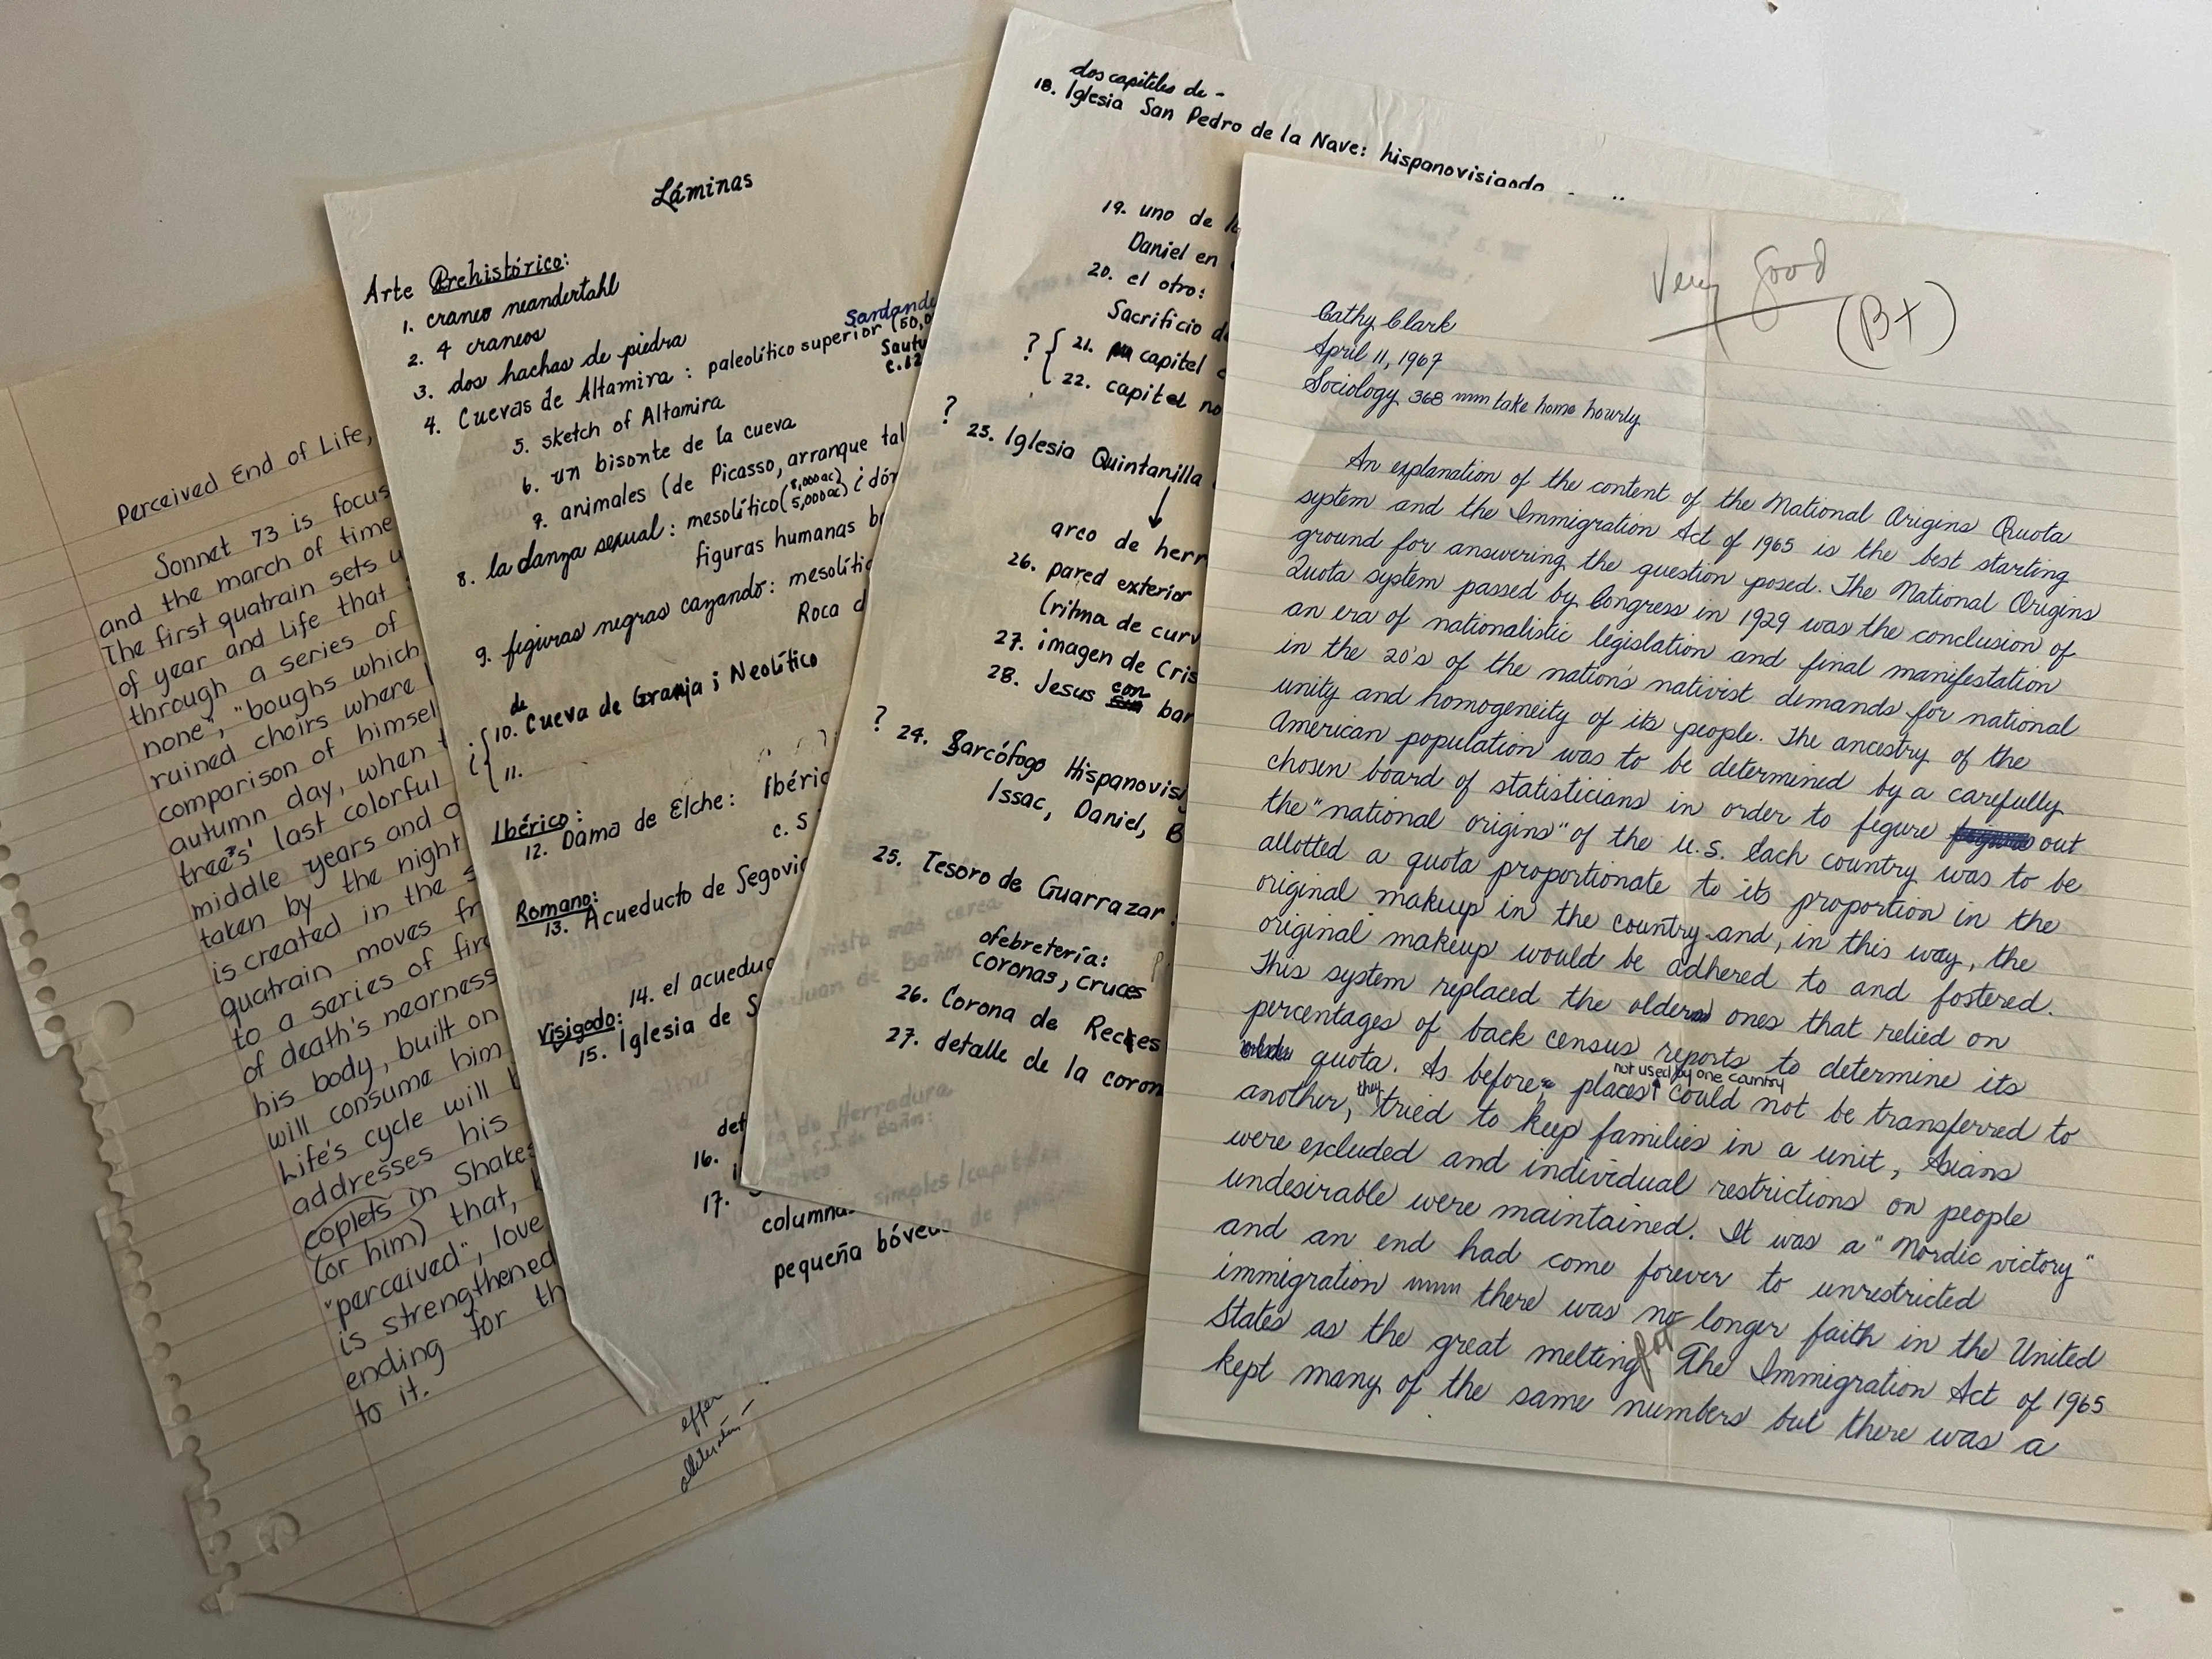 Perceived End of Life,
Sonnet 73 is focus
and the march of time
The first quatrain sets u
of year and life that
through a series of
none", "boughs which
ruined choirs where
comparison of himsel
autumn day, when t
tree's' last colorful
middle years and o
taken by the night
is created in the s
quatrain moves fr
to a series of fire
of death's nearness
his body, built on
will consume him
Life's cycle will b
addresses his
coplets in Shakes
(or him) that, b
"perceived", love
is strengthened
ending for th
to it.
Láminas
Arte Prehistórico:
1. craneo neandertahl
2. 4 craneos
3. dos hachas de piedra
4. Cuevas de Altamira: paleolítico superior (50,0
Sautu
c.12
5. sketch of Altamira
6. un bisonte de la cueva
7. animales (de Picasso, arranque tal
8. la danza sexual: mesolítico (8,000ac) 5,000ac) ¿dón
figuras humanas b
9. figuras negras cazando: mesolític
Roca d
de
10. Cueva de Granja ; Neolítico
11.
Ibérico:
12. Dama de Elche: Ibéric
c. 5
Romano:
13. Acueducto de Segovia
14. el acueduc
Visigodo:
15. Iglesia de S
det
16.
17.
columnas
pequeña bóveda
dos capiteles de -
18. Iglesia San Pedro de la Nave: hispanovisigodo
19. uno de la
Daniel en
20. el otro:
Sacrificio de
? { 21. capitel
22. capitel no
?
23. Iglesia Quintanilla
arco de herr
26. pared exterior
(ritma de curv
27. imagen de Cris
28. Jesus con bar
?
24. Sarcófogo Hispanovisi
Issac, Daniel, B
25. Tesoro de Guarrazar
ofebretería:
coronas, cruces
26. Corona de Reces
27. detalle de la coron
Very Good
(B+)
Cathy Clark
April 11, 1967
Sociology 368 take home hourly
An explanation of the content of the National Origins Quota
system and the Immigration Act of 1965 is the best starting
ground for answering the question posed. The National Origins
Quota system passed by Congress in 1929 was the conclusion of
an era of nationalistic legislation and final manifestation
in the 20's of the nation's nativist demands for national
unity and homogeneity of its people. The ancestry of the
American population was to be determined by a carefully
chosen board of statisticians in order to figure out
the "national origins" of the U.S. Each country was to be
allotted a quota proportionate to its proportion in the
original makeup in the country and, in this way, the
original makeup would be adhered to and fostered.
This system replaced the older ones that relied on
percentages of back census reports to determine its
quota. As before, places not used by one country could not be transferred to
another, they tried to keep families in a unit, Asians
were excluded and individual restrictions on people
undesirable were maintained. It was a "Nordic victory"
and an end had come forever to unrestricted
immigration there was no longer faith in the United
States as the great melting pot The Immigration Act of 1965
kept many of the same numbers but there was a